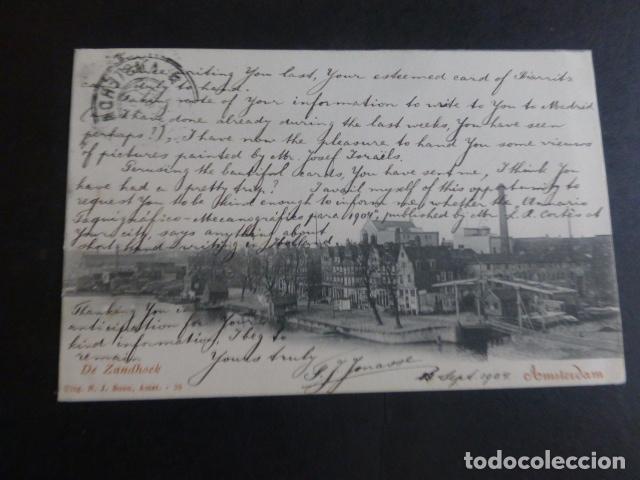 Since writing You last, Your esteemed card of Biarritz
came duly to hand.
Taking note of Your information to write to You to Madrid
(I have done already during the last weeks, You have seen
perhaps?), I have now the pleasure to hand You some views
of pictures painted by Mr. Josef Israëls.
Perusing the beautiful cards, You have sent me, I think You
have had a pretty trip? I avail myself of this opportunity to
request You to be kind enough to inform me, whether the Annuario
Taquigráfico-Mecanográfico para 1904, published by Mr. L. R. Cortés at
Your city, says anything about
shorthand writing in Holland.
Thanking You in
anticipation for Your
kind information, I beg to
remain
Yours truly
J. Jonasse
De Zandhoek
Sept. 1904
Amsterdam
Uitg. N. J. Boon, Amst. - 39
todocoleccion.net